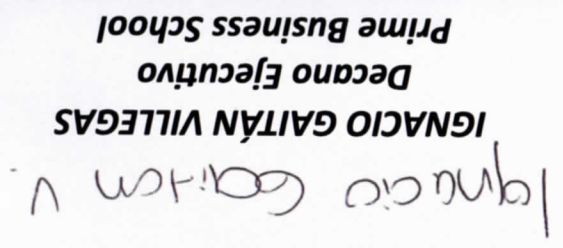 Ignacio Gaitan V.
IGNACIO GAITÁN VILLEGAS
Decano Ejecutivo
Prime Business School